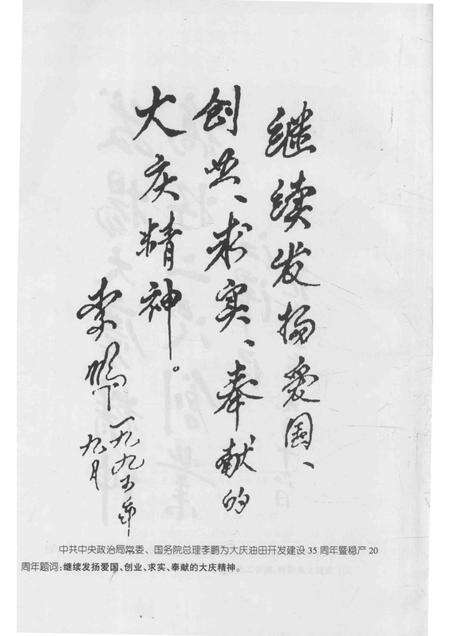 继续发扬爱国、
创业、求实、奉献的
大庆精神。
李鹏
一九九五年
九月
中共中央政治局常委、国务院总理李鹏为大庆油田开发建设 35 周年暨稳产 20
周年题词:继续发扬爱国、创业、求实、奉献的大庆精神。